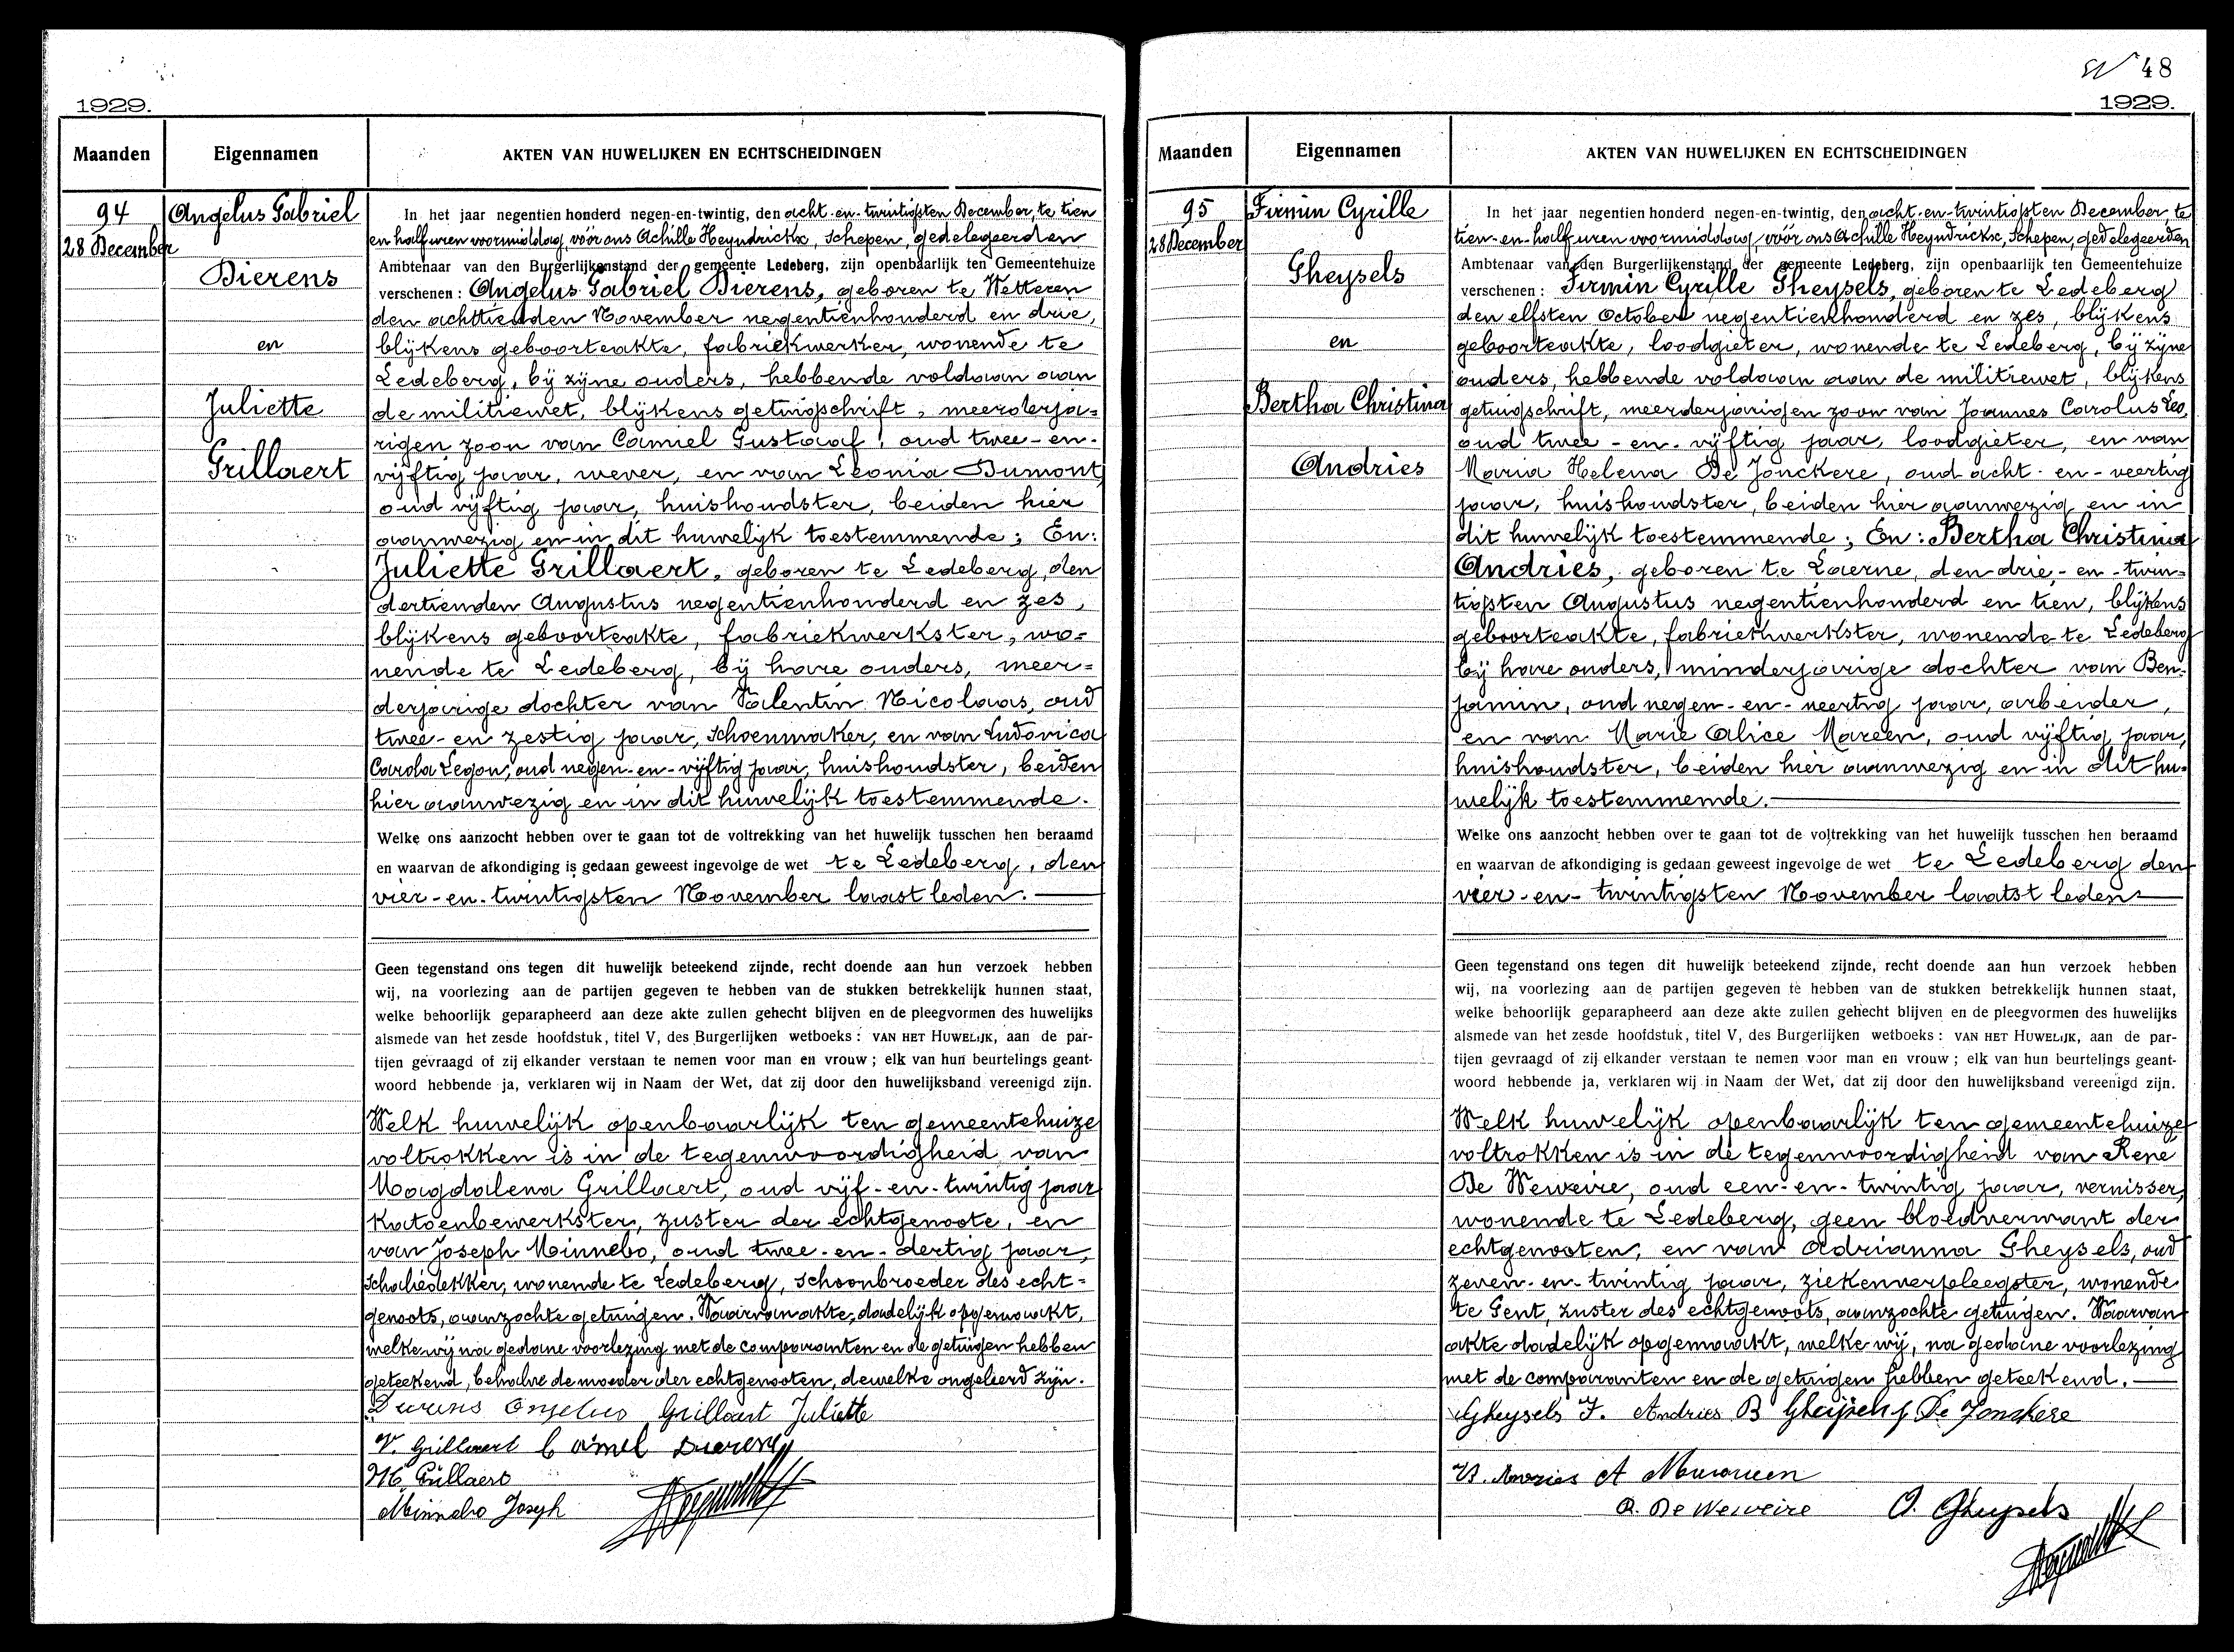 1929.
Maanden
Eigennamen
AKTEN VAN HUWELIJKEN EN ECHTSCHEIDINGEN
94
28 December
Angelus Gabriel
Dierens
en
Juliette
Grillaert
In het jaar negentien honderd negen-en-twintig, den acht-en-twintigsten December, te tien
en half uren voormiddag, vóór ons Achille Heyndrickx, Schepen, gedelegeerden
Ambtenaar van den Burgerlijkenstand der gemeente Ledeberg, zijn openbaarlijk ten Gemeentehuize
verschenen : Angelus Gabriel Dierens, geboren te Wetteren
den achttienden November negentienhonderd en drie,
blijkens geboorteakte, fabriekwerker, wonende te
Ledeberg, bij zijne ouders, hebbende voldaan aan
de militiewet, blijkens getuigschrift, meerderja=
rigen zoon van Camiel Gustaaf, oud twee-en-
vijftig jaar, wever, en van Leonia Dumont,
oud vijftig jaar, huishoudster, beiden hier
aanwezig en in dit huwelijk toestemmende ; En :
Juliette Grillaert, geboren te Ledeberg, den
dertienden Augustus negentienhonderd en zes,
blijkens geboorteakte, fabriekwerkster, wo=
nende te Ledeberg, bij hare ouders, meer=
derjarige dochter van Valentin Nicolaas, oud
twee-en zestig jaar, schoenmaker, en van Ludovica
Carola Legon, oud negen-en-vijftig jaar, huishoudster, beiden
hier aanwezig en in dit huwelijk toestemmende.
Welke ons aanzocht hebben over te gaan tot de voltrekking van het huwelijk tusschen hen beraamd
en waarvan de afkondiging is gedaan geweest ingevolge de wet te Ledeberg, den
vier-en-twintigsten November laast leden.
Geen tegenstand ons tegen dit huwelijk beteekend zijnde, recht doende aan hun verzoek hebben
wij, na voorlezing aan de partijen gegeven te hebben van de stukken betrekkelijk hunnen staat,
welke behoorlijk geparapheerd aan deze akte zullen gehecht blijven en de pleegvormen des huwelijks
alsmede van het zesde hoofdstuk, titel V, des Burgerlijken wetboeks : VAN HET HUWELIJK, aan de par-
tijen gevraagd of zij elkander verstaan te nemen voor man en vrouw ; elk van hun beurtelings geant-
woord hebbende ja, verklaren wij in Naam der Wet, dat zij door den huwelijksband vereenigd zijn.
Welk huwelijk openbaarlijk ten gemeentehuize
voltrokken is in de tegenwoordigheid van
Magdalena Grillaert, oud vijf-en-twintig jaar
katoenbewerkster, zuster der echtgenoote, en
van Joseph Minnebo, oud twee-en-dertig jaar,
schaliedekker, wonende te Ledeberg, schoonbroeder des echt=
genoots, aanzochte getuigen. Waarvan akte, dadelijk opgemaakt,
welke wij na gedane voorlezing met de comparanten en de getuigen hebben
geteekend, behalve de moeder der echtgenooten, dewelke ongeleerd zijn.
Dierens Angelus Grillaert Juliette
V. Grillaert Camiel Dierens
M. Grillaert
Minnebo Joseph
48
1929.
Maanden
Eigennamen
AKTEN VAN HUWELIJKEN EN ECHTSCHEIDINGEN
95
28 December
Firmin Cyrille
Gheysels
en
Bertha Christina
Andries
In het jaar negentien honderd negen-en-twintig, den acht-en-twintigsten December, te
tien-en-half uren voormiddag, vóór ons Achille Heyndrickx, Schepen, gedelegeerden
Ambtenaar van den Burgerlijkenstand der gemeente Ledeberg, zijn openbaarlijk ten Gemeentehuize
verschenen : Firmin Cyrille Gheysels, geboren te Ledeberg
den elfsten October negentienhonderd en zes, blijkens
geboorteakte, loodgieter, wonende te Ledeberg, bij zijne
ouders, hebbende voldaan aan de militiewet, blijkens
getuigschrift, meerderjarigen zoon van Joannes Carolus Leo,
oud twee-en-vijftig jaar, loodgieter, en van
Maria Helena De Jonckere, oud acht-en-veertig
jaar, huishoudster, beiden hier aanwezig en in
dit huwelijk toestemmende ; En : Bertha Christina
Andries, geboren te Laerne, den drie-en-twin=
tigsten Augustus negentienhonderd en tien, blijkens
geboorteakte, fabriekwerkster, wonende te Ledeberg
bij hare ouders, minderjarige dochter van Ben-
jamin, oud negen-en-veertig jaar, arbeider,
en van Marie Alice Mareen, oud vijftig jaar,
huishoudster, beiden hier aanwezig en in dit hu=
welijk toestemmemde.
Welke ons aanzocht hebben over te gaan tot de voltrekking van het huwelijk tusschen hen beraamd
en waarvan de afkondiging is gedaan geweest ingevolge de wet te Ledeberg den
vier-en-twintigsten November laatst leden
Geen tegenstand ons tegen dit huwelijk beteekend zijnde, recht doende aan hun verzoek hebben
wij, na voorlezing aan de partijen gegeven te hebben van de stukken betrekkelijk hunnen staat,
welke behoorlijk geparapheerd aan deze akte zullen gehecht blijven en de pleegvormen des huwelijks
alsmede van het zesde hoofdstuk, titel V, des Burgerlijken wetboeks : VAN HET HUWELIJK, aan de par-
tijen gevraagd of zij elkander verstaan te nemen voor man en vrouw ; elk van hun beurtelings geant-
woord hebbende ja, verklaren wij in Naam der Wet, dat zij door den huwelijksband vereenigd zijn.
Welk huwelijk openbaarlijk ten gemeentehuize
voltrokken is in de tegenwoordigheid van Rene
De Weweire, oud een-en-twintig jaar, vernisser,
wonende te Ledeberg, geen bloedverwant der
echtgenooten, en van Adrianna Gheysels, oud
zeven-en-twintig jaar, ziekenverpleegster, wonende
te Gent, zuster des echtgenoots, aanzochte getuigen. Waarvan
akte dadelijk opgemaakt, welke wij, na gedane voorlezing
met de comparanten en de getuigen hebben geteekend.
Gheysels F. Andries B Gheysels J De Jonckere
B. Andries A
R. De Weweire A. Gheysels